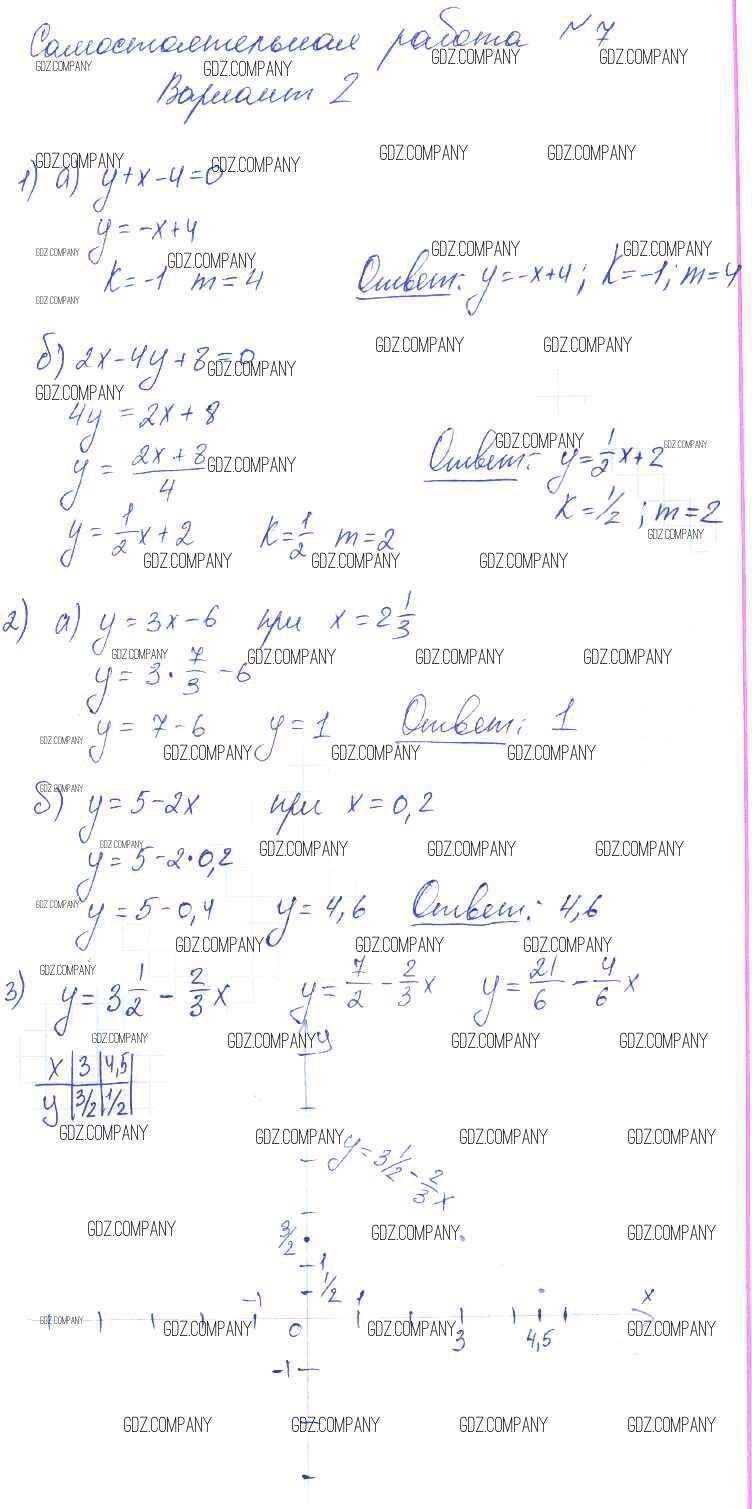 Самостоятельная работа №7
Вариант 2
1) а) y+x-4=0
y=-x+4
k=-1 m=4 Ответ: y=-x+4; k=-1; m=4
б) 2x-4y+8=0
4y=2x+8
y=(2x+8)/4 Ответ: y=1/2x+2
k=1/2; m=2
y=1/2x+2 k=1/2 m=2
2) а) y=3x-6 при x=2 1/3
y=3·7/3-6
y=7-6 y=1 Ответ: 1
б) y=5-2x при x=0,2
y=5-2·0,2
y=5-0,4 y=4,6 Ответ: 4,6
3) y=3 1/2-2/3x y=7/2-2/3x y=21/6-4/6x
y
x 3 4,5
y 3/2 1/2
y=3 1/2-2/3x
3/2
1
1/2
-1 1 x
0 3 4,5
-1
GDZ.COMPANY